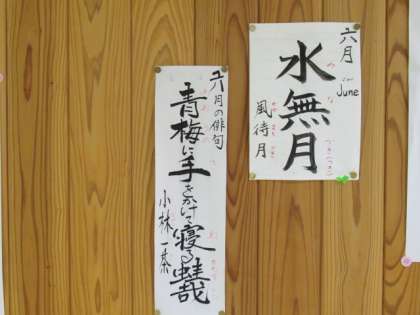 六月
June
水無月
風待月
六月の俳句
青梅に手をかけて寝る蛙哉
小林一茶